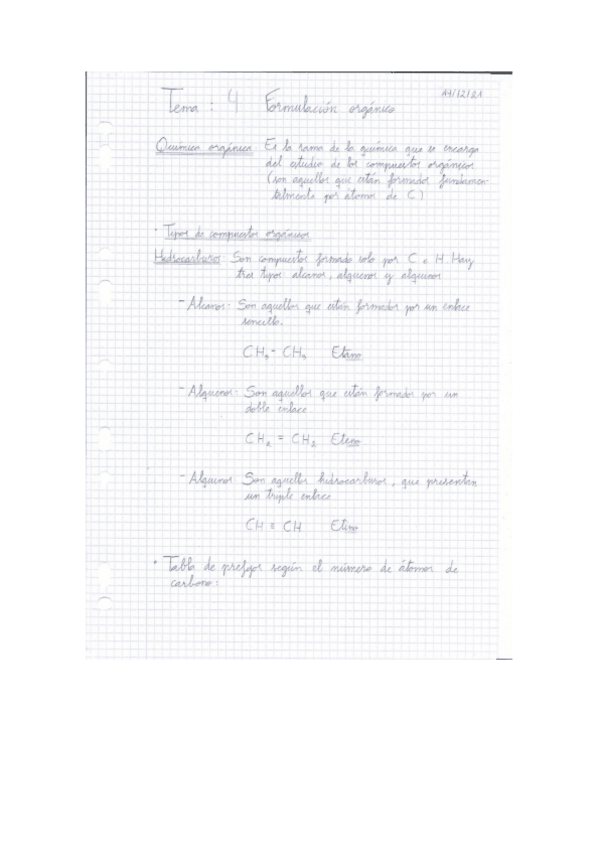 14/12/21
Tema : 4 Formulación orgánica
Química orgánica: Es la rama de la química que se encarga
del estudio de los compuestos orgánicos
(son aquellos que están formados fundamen-
talmente por átomos de C)
· Tipos de compuestos orgánicos
Hidrocarburos: Son compuestos formado solo por C e H Hay
tres tipos alcanos, alquenos y alquinos
- Alcanos- Son aquellos que están formados por un enlace
sencillo.
CH₃ - CH₃ Etano
- Alquenos- Son aquellos que están formados por un
doble enlace
CH₂ = CH₂ Eteno
- Alquinos Son aquellos hidrocarburos, que presentan
un triple enlace
CH ≡ CH Etino
· Tabla de prefijos según el número de átomos de
carbono: